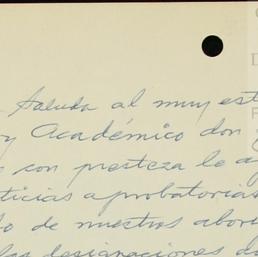 Saluda al muy est
y Académico don
con presteza le a
ticias aprobatorias
do de nuestros abor
las designaciones da